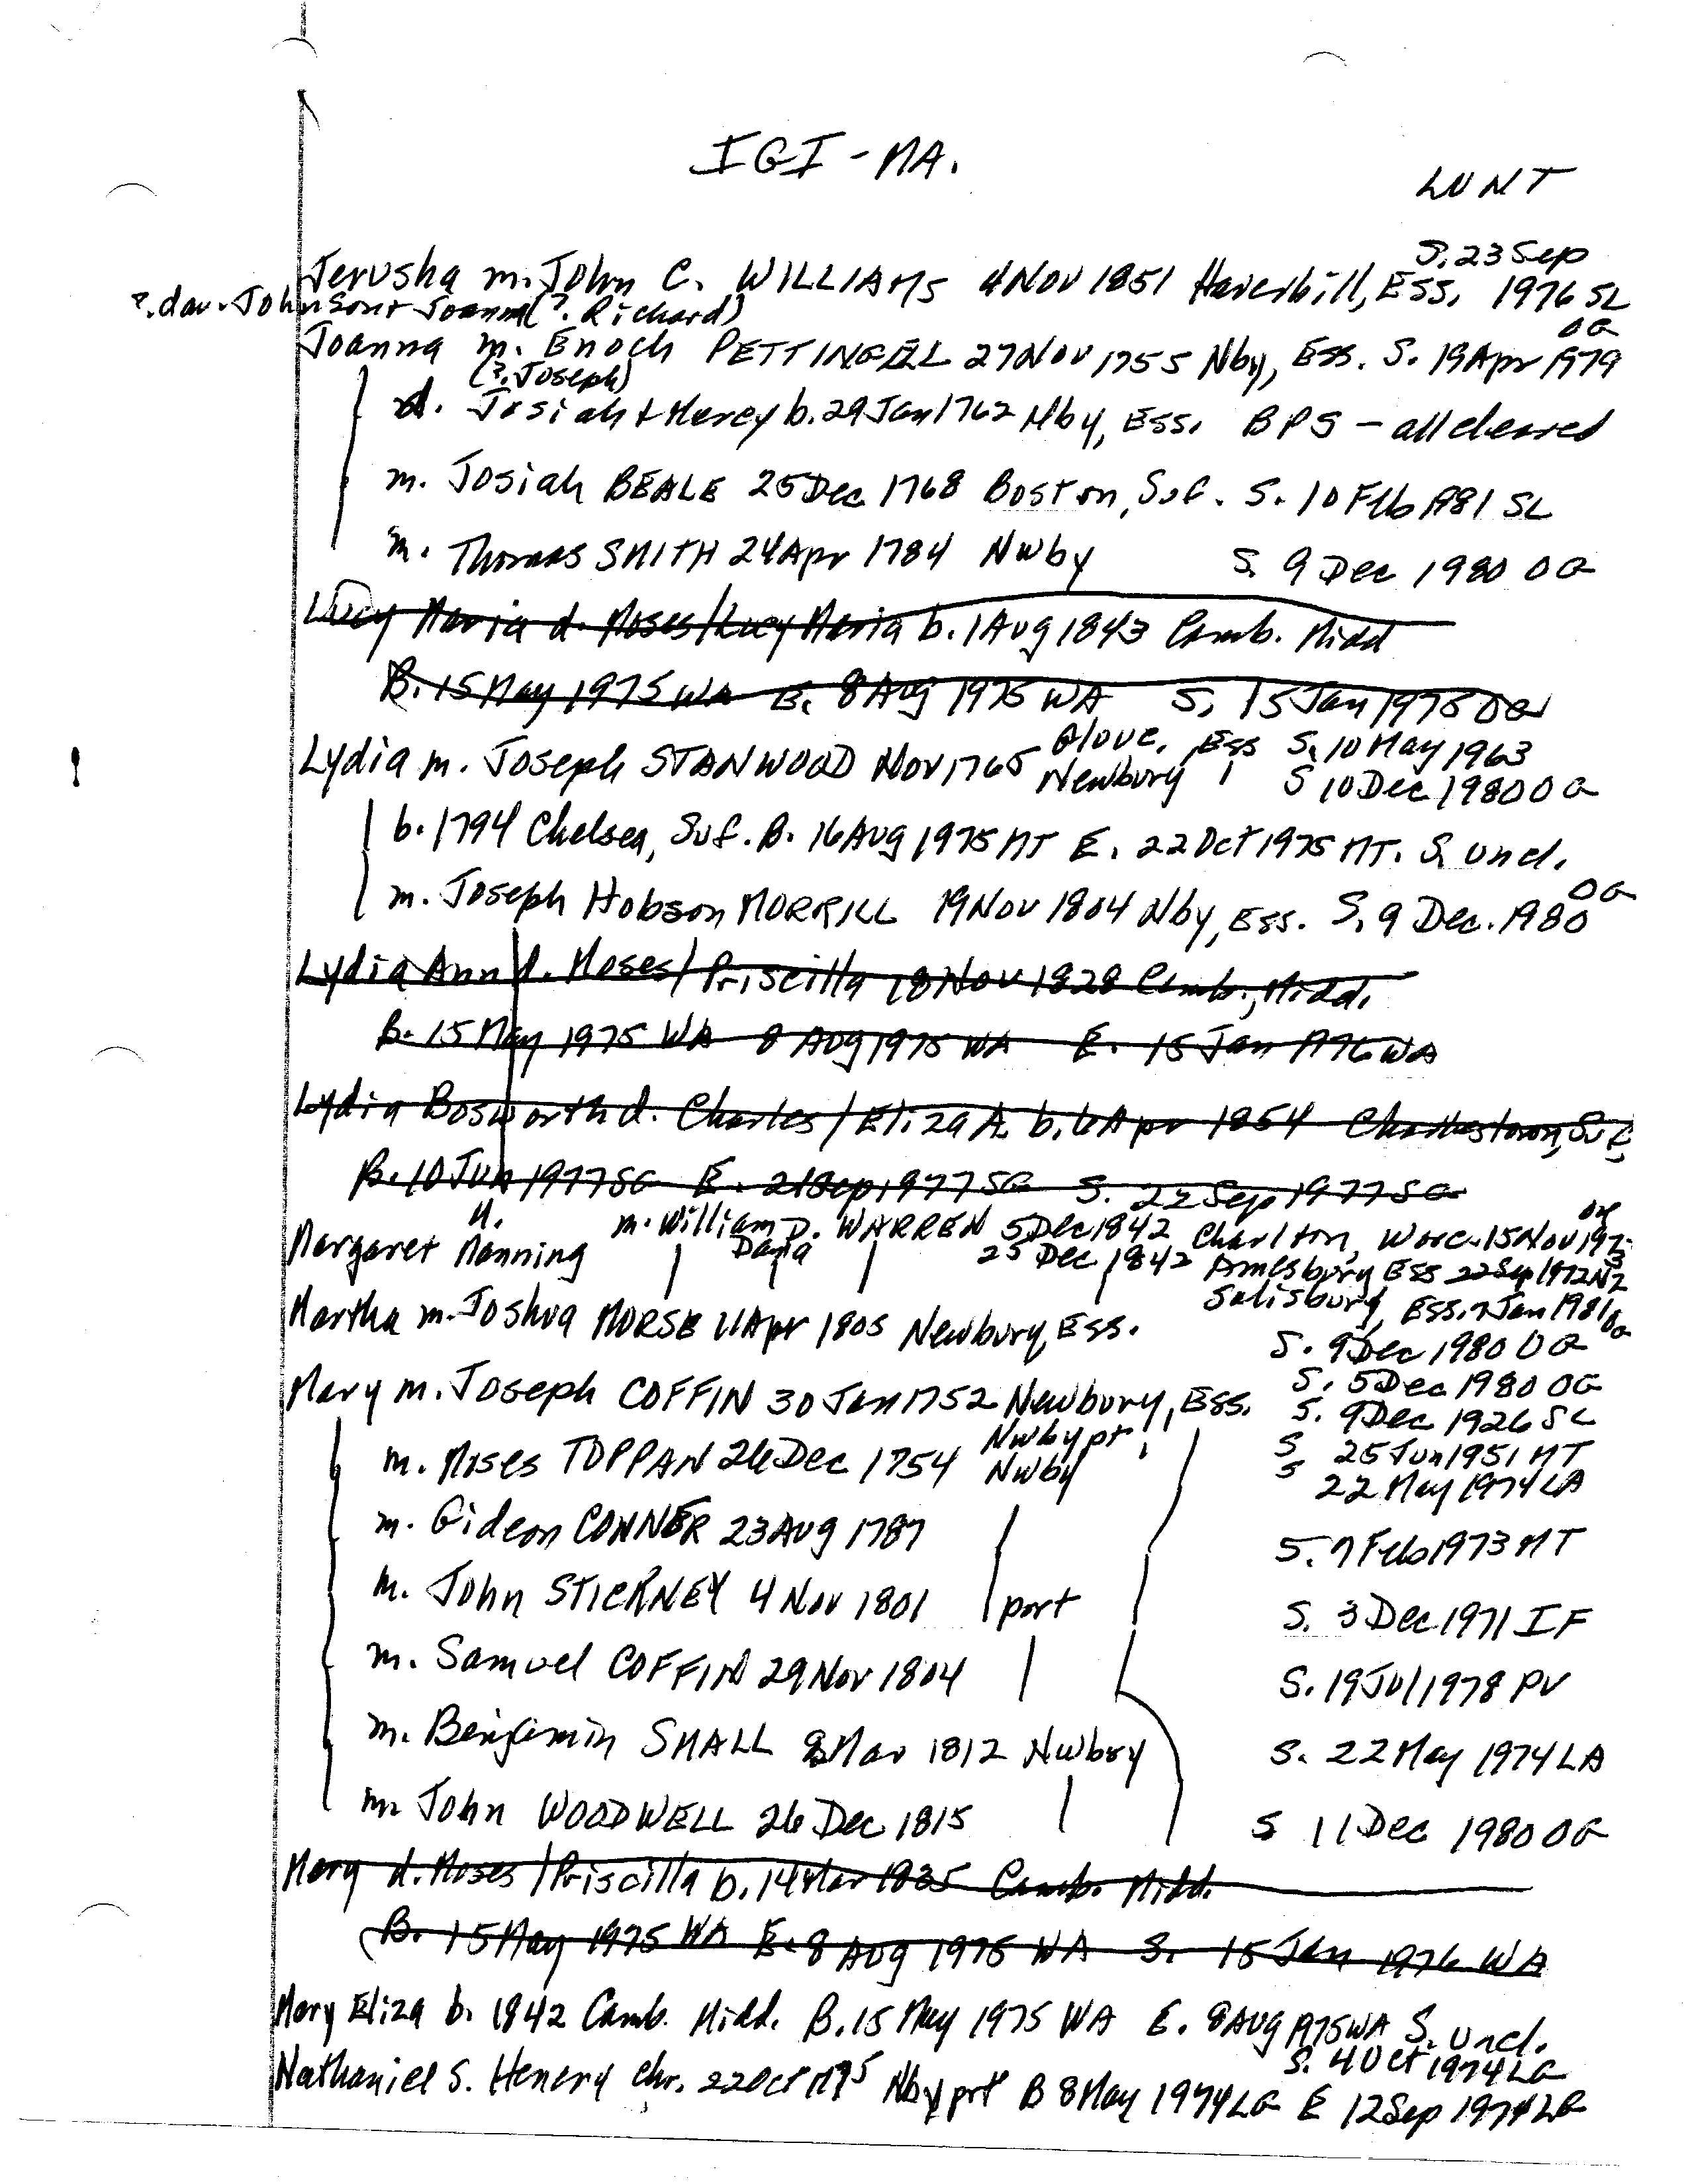 IGI - MA.
LUNT
S. 23 Sep
Jerusha m. John C. WILLIAMS 4 Nov 1851 Haverhill, Ess, 1976 SL
?. dau. Johnson + Joanna (?. Richard)
OG
Joanna m. Enoch PETTINGELL 27 Nov 1755 Nby, Ess. S. 19 Apr 1979
(?. Joseph)
d. Josiah + Mercy b. 29 Jan 1762 Nby, Ess. BPS - all cleared
m. Josiah BEALE 25 Dec 1768 Boston, Suf. S. 10 Feb 1981 SL
m. Thomas SMITH 24 Apr 1784 Nwby S. 9 Dec 1980 OG
Lucy Maria d. Moses/Lucy Maria b. 1 Aug 1843 Camb. Midd
B. 15 May 1975 WA E. 8 Aug 1975 WA S. 15 Jan 1975 OG
Glouc, Ess S. 10 May 1963
Lydia m. Joseph STANWOOD Nov 1765 Newbury S 10 Dec 1980 OG
b. 1794 Chelsea, Suf. B. 16 Aug 1975 MT E. 22 Oct 1975 MT. S. uncl.
m. Joseph Hobson MORRILL 19 Nov 1804 Nby, Ess. S. 9 Dec. 1980 OG
Lydia Ann d. Moses/Priscilla 18 Nov 1828 Camb., Midd.
B. 15 May 1975 WA 8 Aug 1975 WA E. 15 Jan 1976 WA
Lydia Bosworth d. Charles/Eliza A. b. 6 Apr 1854 Charlestown, Suf,
B. 10 Jun 1977 SG E. 21 Sep 1977 SG S. 22 Sep 1977 SG
H. m. William D. WARREN 5 Dec 1842 Charlton, Worc. 15 Nov 1973
Margaret Manning Dana 25 Dec 1842 Amesbury Ess 22 Sep 1972 NZ
Salisbury, Ess. 7 Jan 1981 OG
Martha m. Joshua MORSE 11 Apr 1805 Newbury, Ess.
S. 9 Dec 1980 OG
S. 5 Dec 1980 OG
Mary m. Joseph COFFIN 30 Jan 1752 Newbury, Ess. S. 9 Dec 1926 SL
Nwbypt S 25 Jun 1951 MT
m. Moses TOPPAN 26 Dec 1754 Nwby S 22 May 1974 LA
m. Gideon CONNER 23 Aug 1787 S. 7 Feb 1973 MT
m. John STICKNEY 4 Nov 1801 port S. 3 Dec 1971 IF
m. Samuel COFFIN 29 Nov 1804 S. 19 Jul 1978 PV
m. Benjamin SMALL 8 Mar 1812 Nwbry S. 22 May 1974 LA
m John WOODWELL 26 Dec 1815 S 11 Dec 1980 OG
Mary d. Moses/Priscilla b. 14 Mar 1835 Camb. Midd.
B. 15 May 1975 WA E. 8 Aug 1975 WA S. 15 Jan 1976 WA
Mary Eliza b. 1842 Camb. Midd. B. 15 May 1975 WA E. 8 Aug 1975 WA S. uncl.
S. 4 Oct 1974 LG
Nathaniel S. Henery chr. 22 Oct Nbyprt B 8 May 1974 LG E 12 Sep 1974 LG